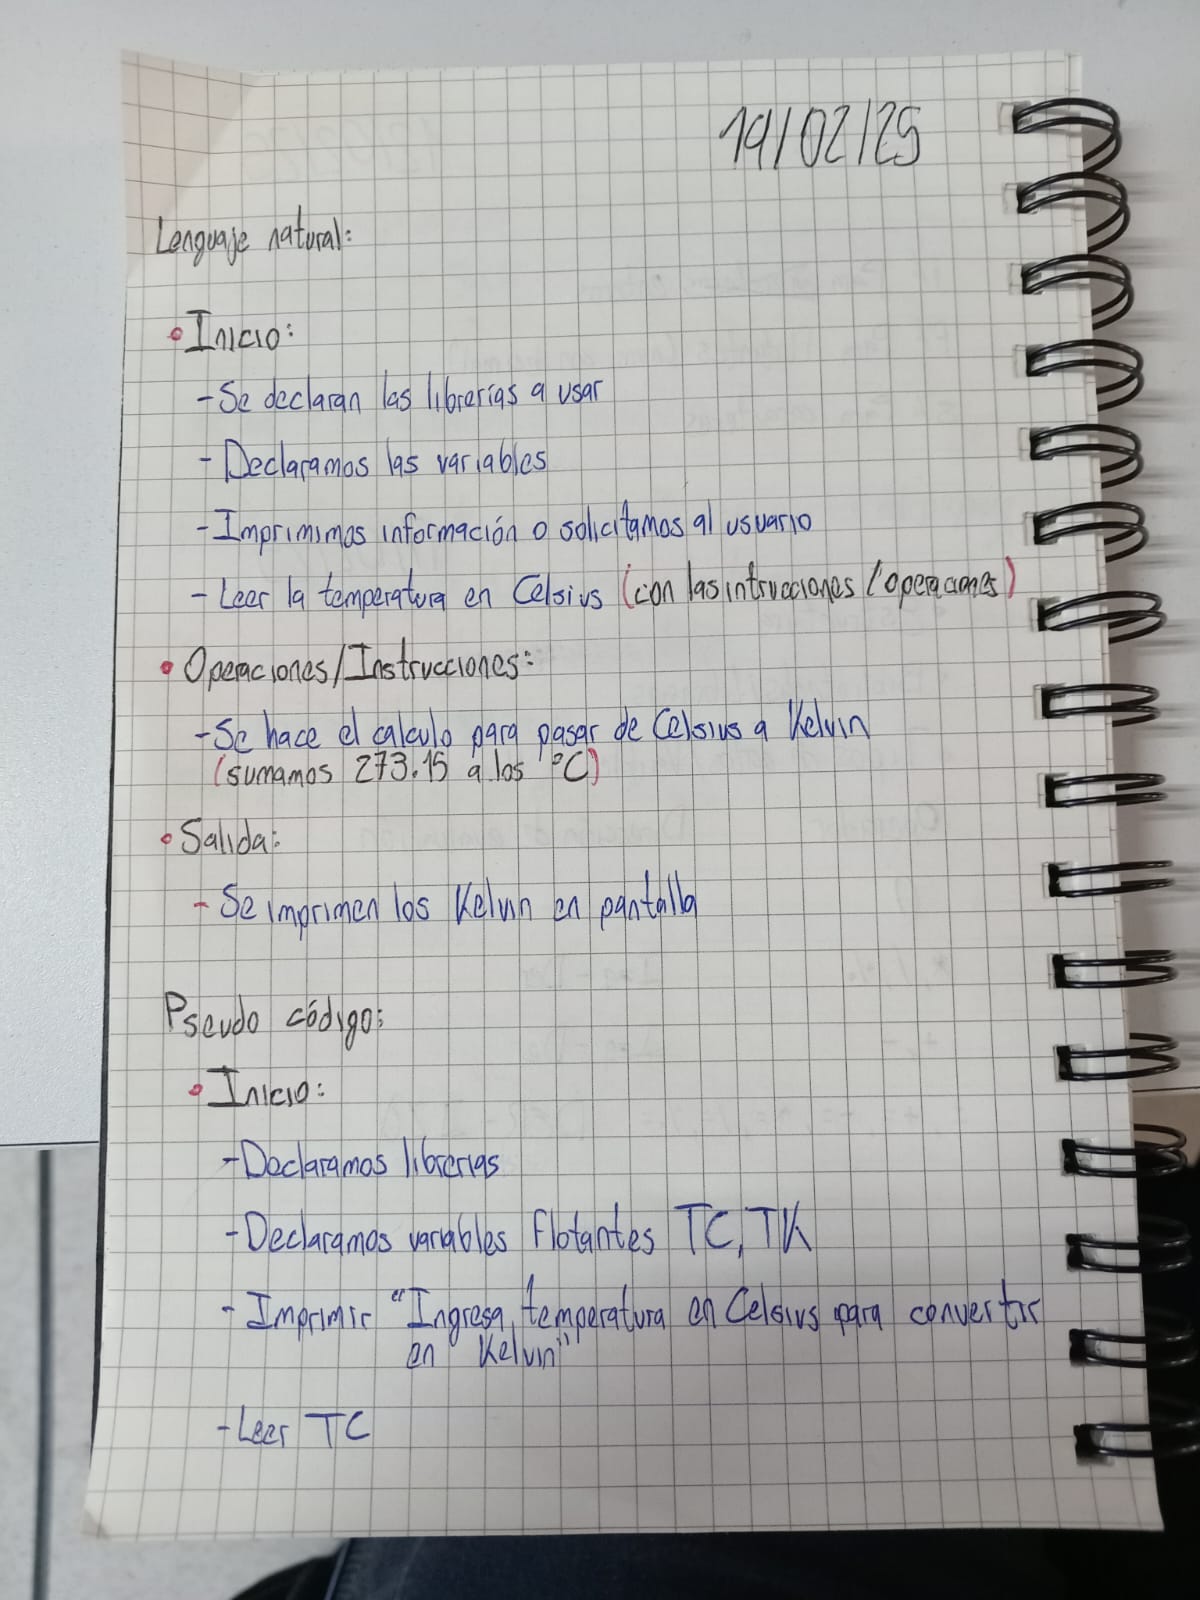 19/02/25
Lenguaje natural:
• Inicio:
- Se declaran las librerías a usar
- Declaramos las variables
- Imprimimos información o solicitamos al usuario
- Leer la temperatura en Celsius (con las intrucciones/operaciones)
• Operaciones/Instrucciones:
- Se hace el calculo para pasar de Celsius a Kelvin
(sumamos 273.15 a los °C)
• Salida:
- Se imprimen los Kelvin en pantalla
Pseudo código:
• Inicio:
- Declaramos librerias
- Declaramos variables flotantes TC, TK
- Imprimir "Ingresa temperatura en Celsius para convertir
en Kelvin"
- Leer TC